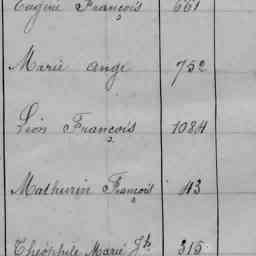 Eugène François 661
Marie Ange 752
Léon François 1084
Mathurin François 43
Théophile Marie Jh 315